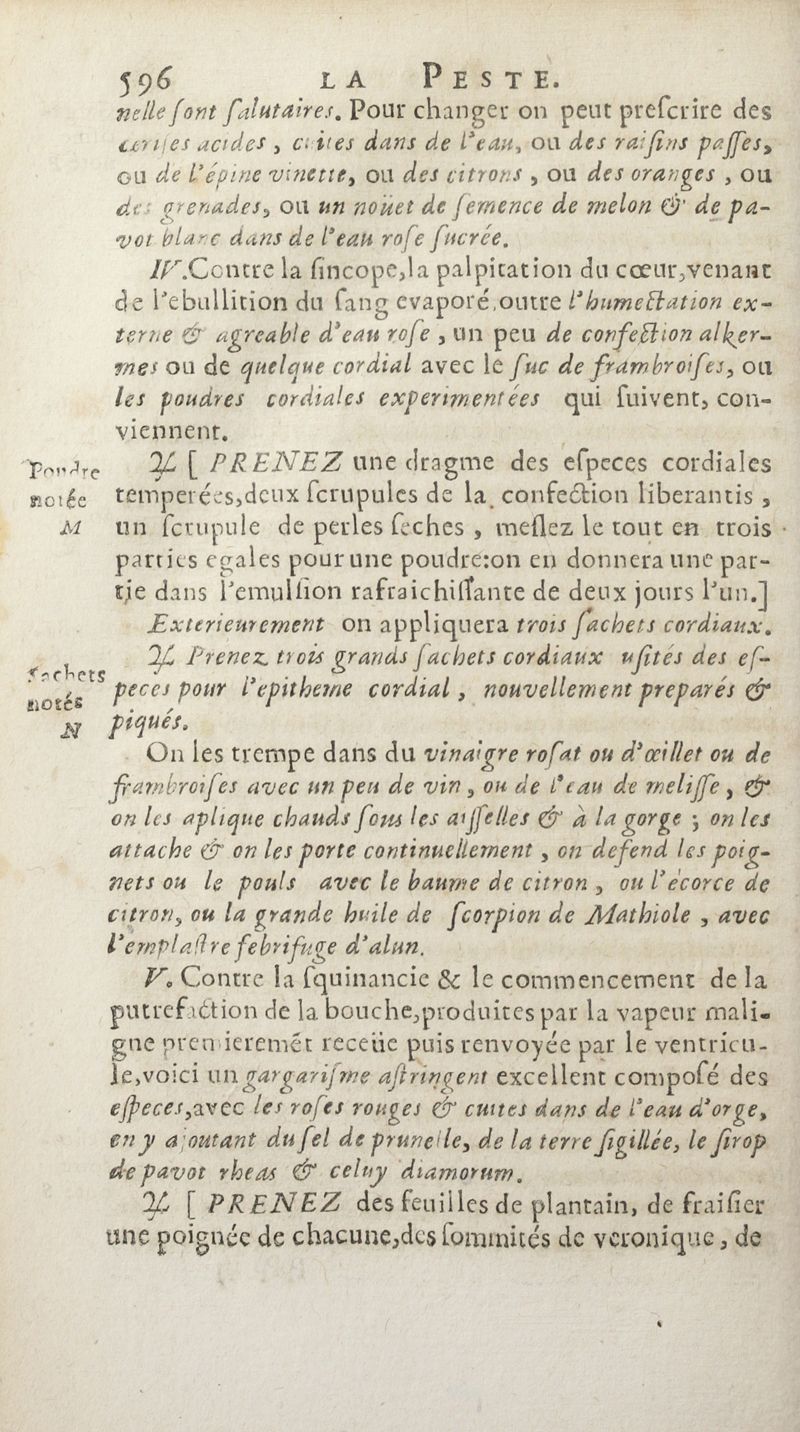 596 LA PESTE.
nelle ſont ſalutaires. Pour changer on peut preſcrire des
ceriſes acides , cuites dans de l'eau, ou des raiſins paſſes,
ou de l'épine vinette, ou des citrons , ou des oranges , ou
des grenades, ou un noüet de ſemence de melon & de pa-
vot blanc dans de l'eau roſe ſucrée.
IV. Contre la ſincope, la palpitation du cœur, venant
de l'ebullition du ſang evaporé, outre l'humectation ex-
terne & agreable d'eau roſe , un peu de confection alker-
mes ou de quelque cordial avec le ſuc de frambroiſes, ou
les poudres cordiales experimentées qui ſuivent, con-
viennent.
Poudre
notée
M
♃ [ PRENEZ une dragme des eſpeces cordiales
temperées, deux ſcrupules de la confection liberantis ,
un ſcrupule de perles ſeches , meſlez le tout en trois
parties egales pour une poudre: on en donnera une par-
tie dans l'emulſion rafraichiſſante de deux jours l'un.]
Exterieurement on appliquera trois ſachets cordiaux.
ſachets
notés
N
♃ Prenez trois grands ſachets cordiaux uſités des eſ-
peces pour l'epitheme cordial , nouvellement preparés &
piqués.
On les trempe dans du vinaigre roſat ou d'œillet ou de
frambroiſes avec un peu de vin , ou de l'eau de meliſſe , &
on les aplique chauds ſous les aiſſelles & à la gorge ; on les
attache & on les porte continuellement , on defend les poig-
nets ou le pouls avec le baume de citron , ou l'écorce de
citron, ou la grande huile de ſcorpion de Mathiole , avec
l'emplaſtre febrifuge d'alun.
V. Contre la ſquinancie & le commencement de la
putrefaction de la bouche, produites par la vapeur mali-
gne premieremẽt receüe puis renvoyée par le ventricu-
le, voici un gargariſme aſtringent excellent compoſé des
eſpeces, avec les roſes rouges & cuites dans de l'eau d'orge,
en y ajoutant du ſel de prunelle, de la terre ſigillée, le ſirop
de pavot rheas & celuy diamorum.
♃ [ PRENEZ des feuilles de plantain, de fraiſier
une poignée de chacune, des ſommités de veronique , de